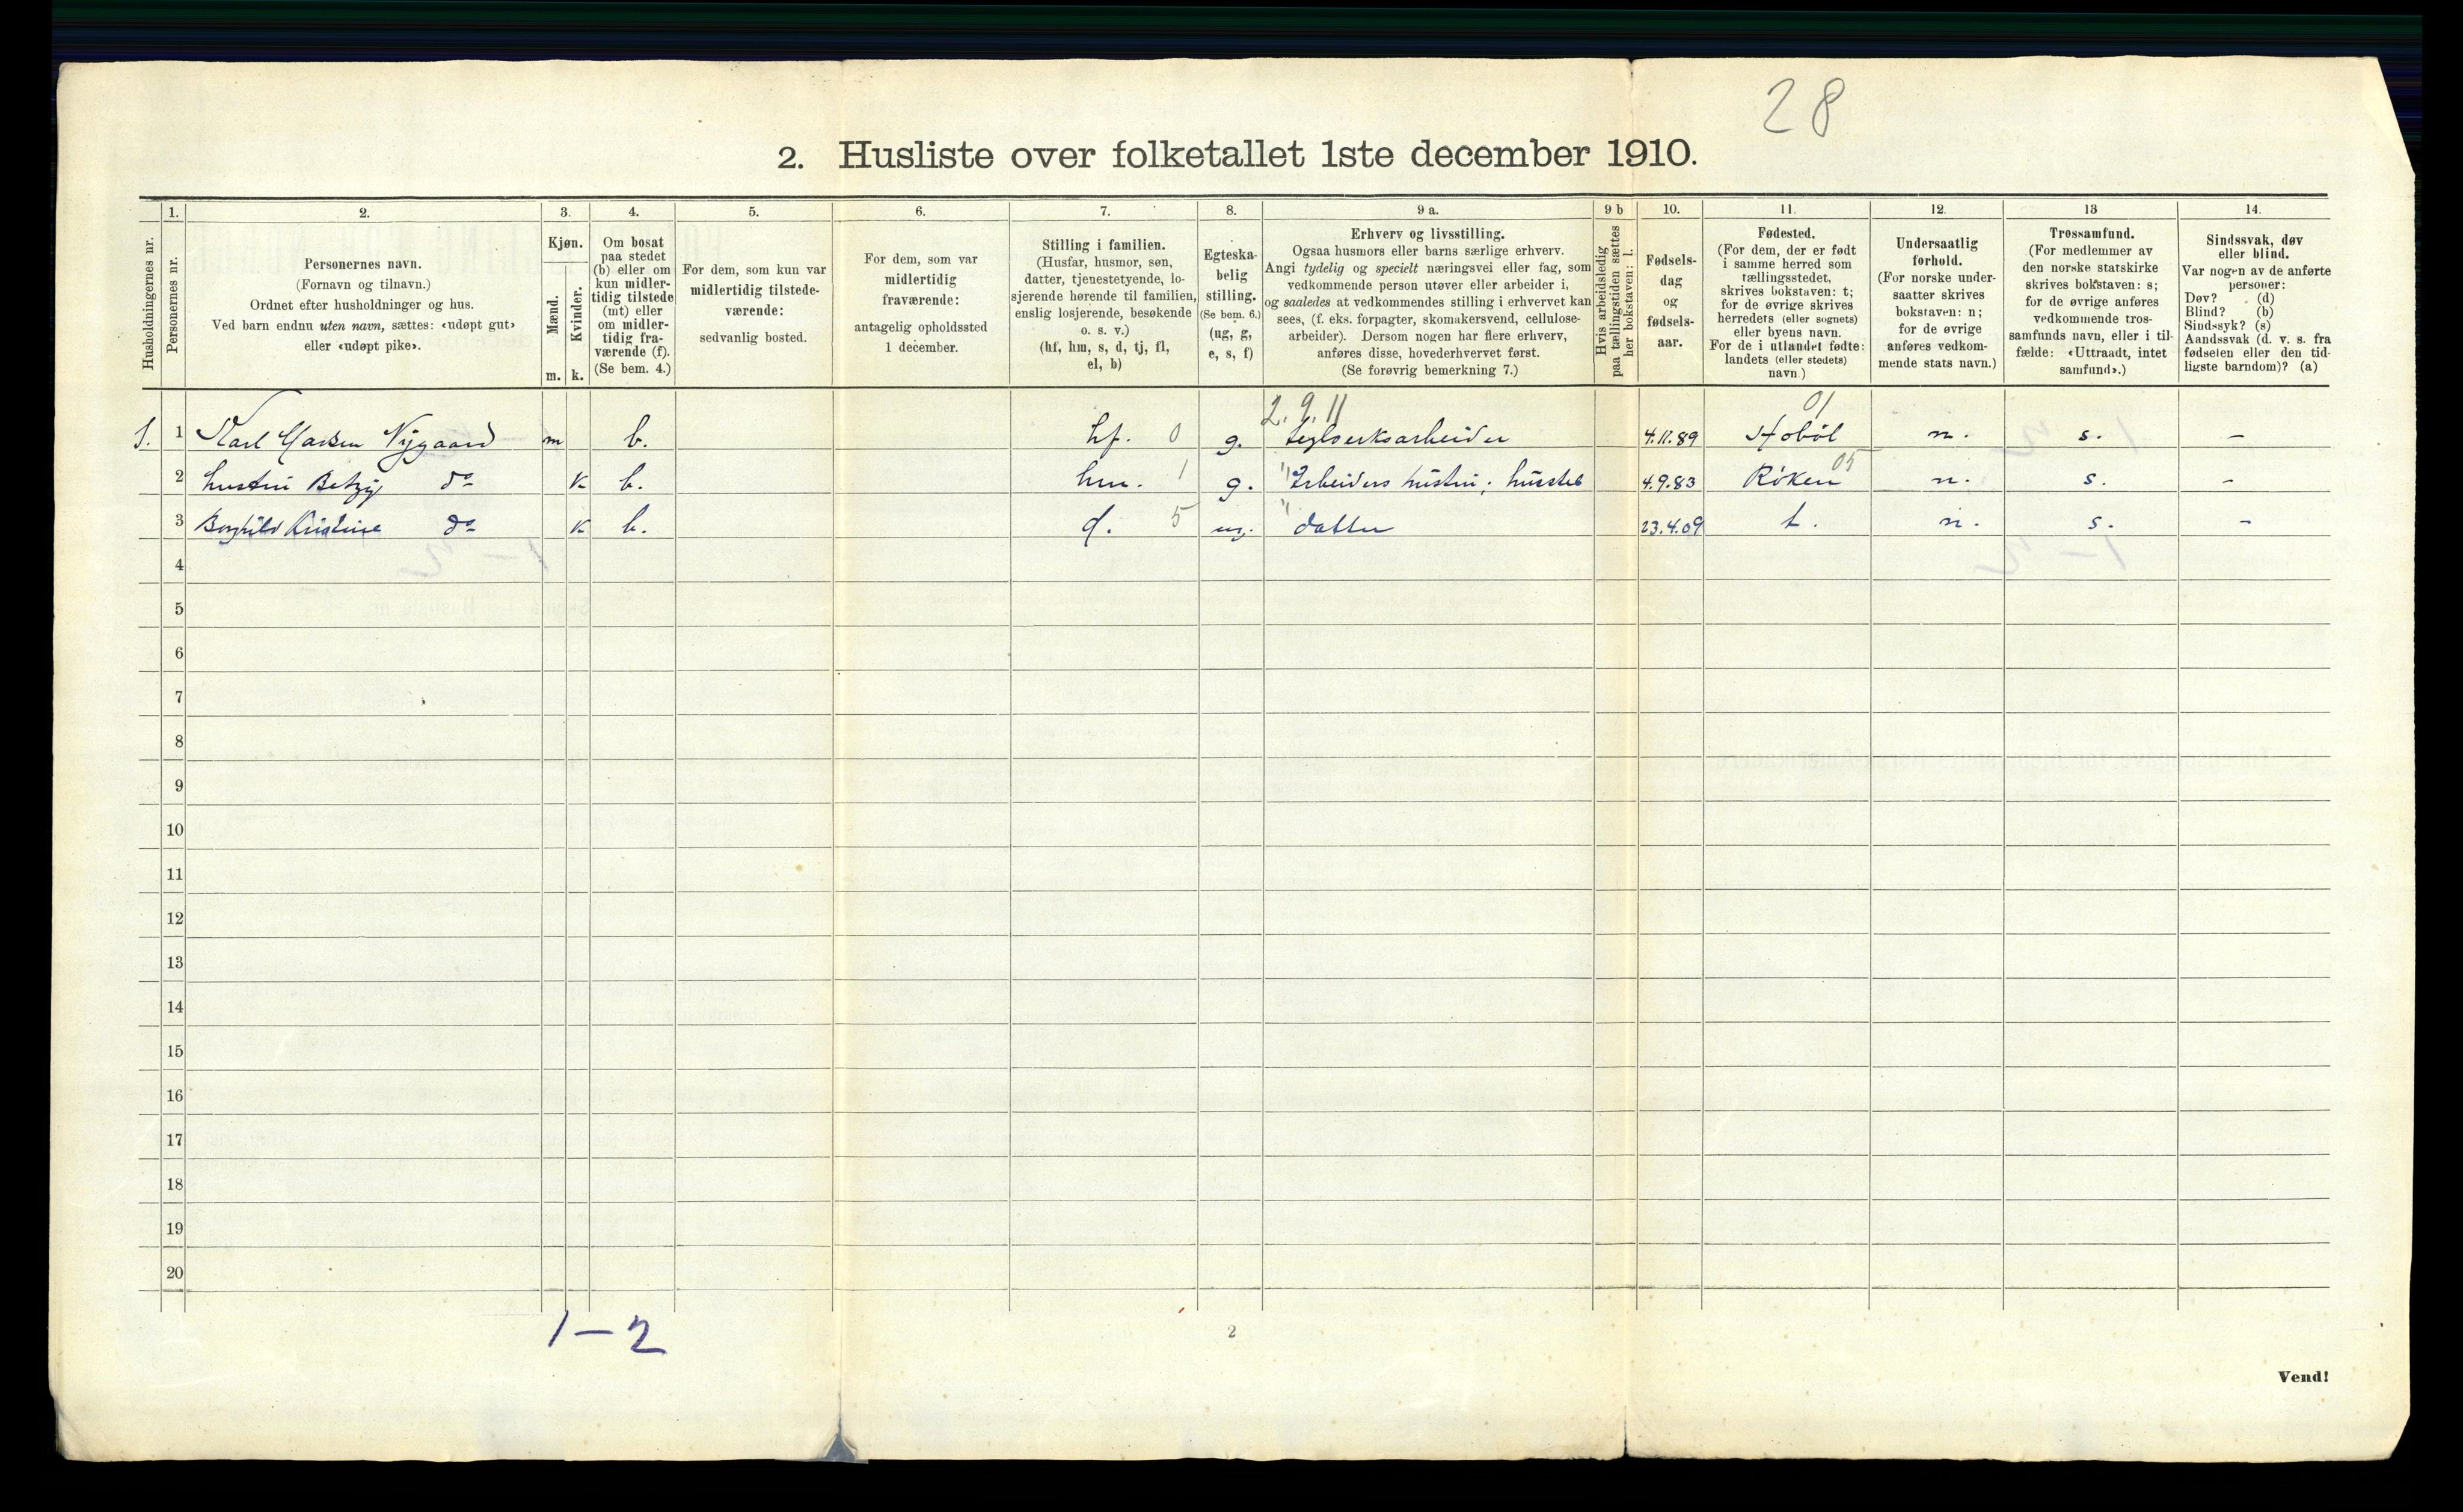 28
2. Husliste over folketallet 1ste december 1910.
Husholdningernes nr.
1.
Personernes nr.
2.
Personernes navn.
(Fornavn og tilnavn.)
Ordnet efter husholdninger og hus.
Ved barn endnu uten navn, sættes: «udøpt gut»
eller «udøpt pike».
3.
Kjøn.
Mænd.
Kvinder.
m. k.
4.
Om bosat
paa stedet
(b) eller om
kun midler-
tidig tilstede
(mt) eller
om midler-
tidig fra-
værende (f).
(Se bem. 4.)
5.
For dem, som kun var
midlertidig tilstede-
værende:
sedvanlig bosted.
6.
For dem, som var
midlertidig
fraværende:
antagelig opholdssted
1 december.
7.
Stilling i familien.
(Husfar, husmor, søn,
datter, tjenestetyende, lo-
sjerende hørende til familien,
enslig losjerende, besøkende
o. s. v.)
(hf, hm, s, d, tj, fl,
el, b)
8.
Egteska-
belig
stilling.
(Se bem. 6.)
(ug, g,
e, s, f)
9 a.
Erhverv og livsstilling.
Ogsaa husmors eller barns særlige erhverv.
Angi tydelig og specielt næringsvei eller fag, som
vedkommende person utøver eller arbeider i,
og saaledes at vedkommendes stilling i erhvervet kan
sees, (f. eks. forpagter, skomakersvend, cellulose-
arbeider). Dersom nogen har flere erhverv,
anføres disse, hovederhvervet først.
(Se forøvrig bemerkning 7.)
9 b
Hvis arbeidsledig
paa tællingstiden sættes
her bokstaven: l.
10.
Fødsels-
dag
og
fødsels-
aar.
11.
Fødested.
(For dem, der er født
i samme herred som
tællingsstedet,
skrives bokstaven: t;
for de øvrige skrives
herredets (eller sognets)
eller byens navn.
For de i utlandet fødte:
landets (eller stedets)
navn.)
12.
Undersaatlig
forhold.
(For norske under-
saatter skrives
bokstaven: n;
for de øvrige
anføres vedkom-
mende stats navn.)
13
Trossamfund.
(For medlemmer av
den norske statskirke
skrives bokstaven: s;
for de øvrige anføres
vedkommende tros-
samfunds navn, eller i til-
fælde: «Uttraadt, intet
samfund».)
14.
Sindssvak, døv
eller blind.
Var nogen av de anførte
personer:
Døv? (d)
Blind? (b)
Sindssyk? (s)
Aandssvak (d. v. s. fra
fødselen eller den tid-
ligste barndom)? (a)
2. 9. 11 01
1. 1 Karl Nygaard m b. hf. 0 g. teglverksarbeider 4.11.89 Hobøl n. s. –
2 hustru Betzy do k b. hm. 1 g. " Arbeiders hustru; husstel 4.9.83 Røken 05 n. s. –
3 Borghild Kristine do k b. d. 5 ug. " datter 23.4.09 t. n. s. –
4
5
6
7
8
9
10
11
12
13
14
15
16
17
18
19
20
1 – 2
2
Vend!